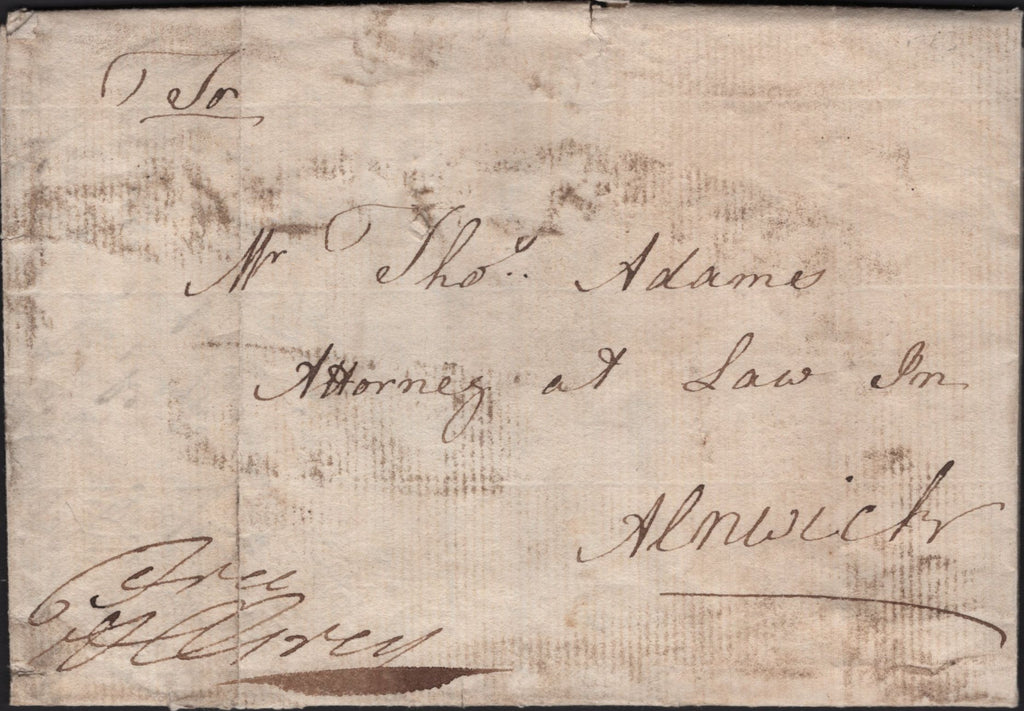 To
Mr Tho.s Adams
Attorney at Law In
Alnwick
Free
H Grey